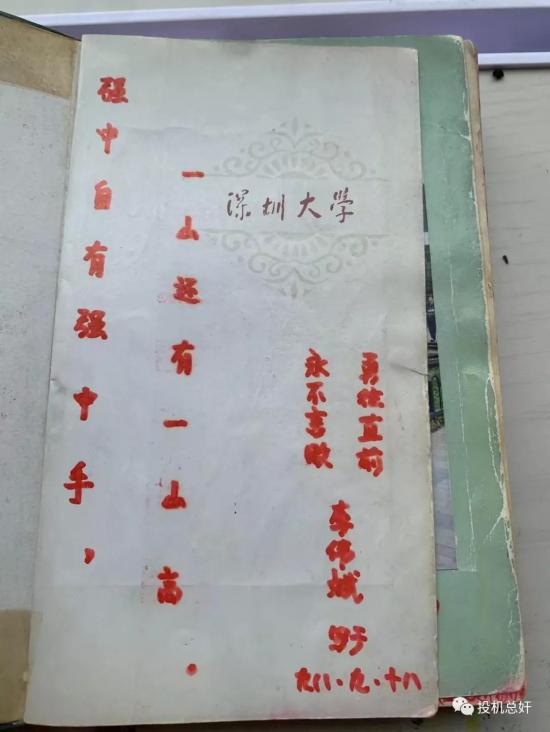 深圳大學
强中自有强中手，
一山还有一山高。
勇往直前
永不言败
李伟娥 写于
九八.九.十八
投机总奸